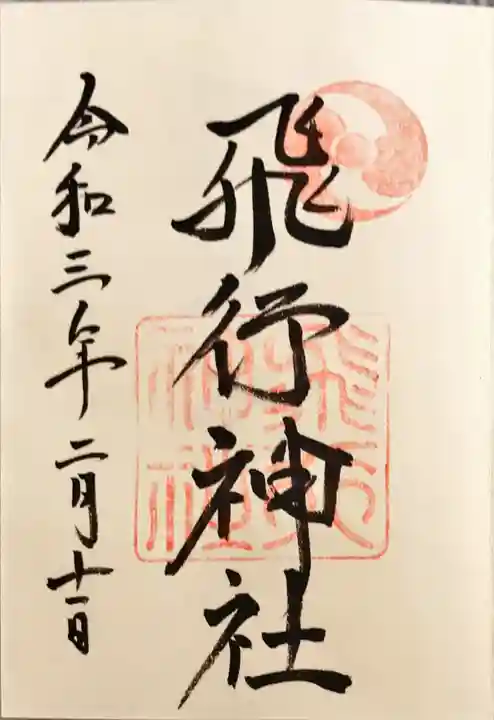 飛行神社
令和三年二月十一日
飛行
神社